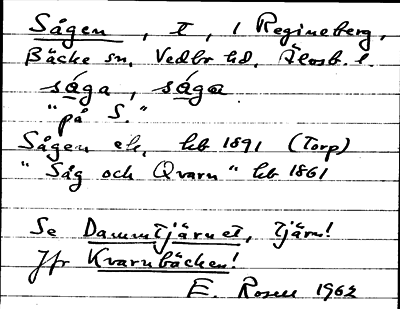 Sågen, t, i Regineberg,
Bäcke sn, Vedbo hd, Älvsb. l.
såga, såga
"på S."
Sågen ek, hb 1891 (Torp)
"Såg och Qvarn" hb 1861
Se Dammtjärnet, tjärn!
Jfr Kvarnbäcken!
E. Rosell 1962